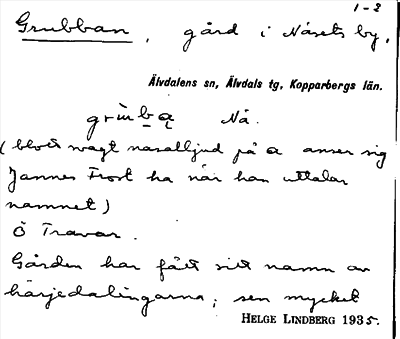 1-2
Grubban, gård i Näsets by,
Älvdalens sn, Älvdals tg, Kopparbergs län.
grùb̲ą Nä.
(blott svagt nasalljud på a anser sig
Jannes Frost ha när han uttalar
namnet)
Ö Travar.
Gården har fått sitt namn av
härjedalingarna, sen mycket
HELGE LINDBERG 1935.